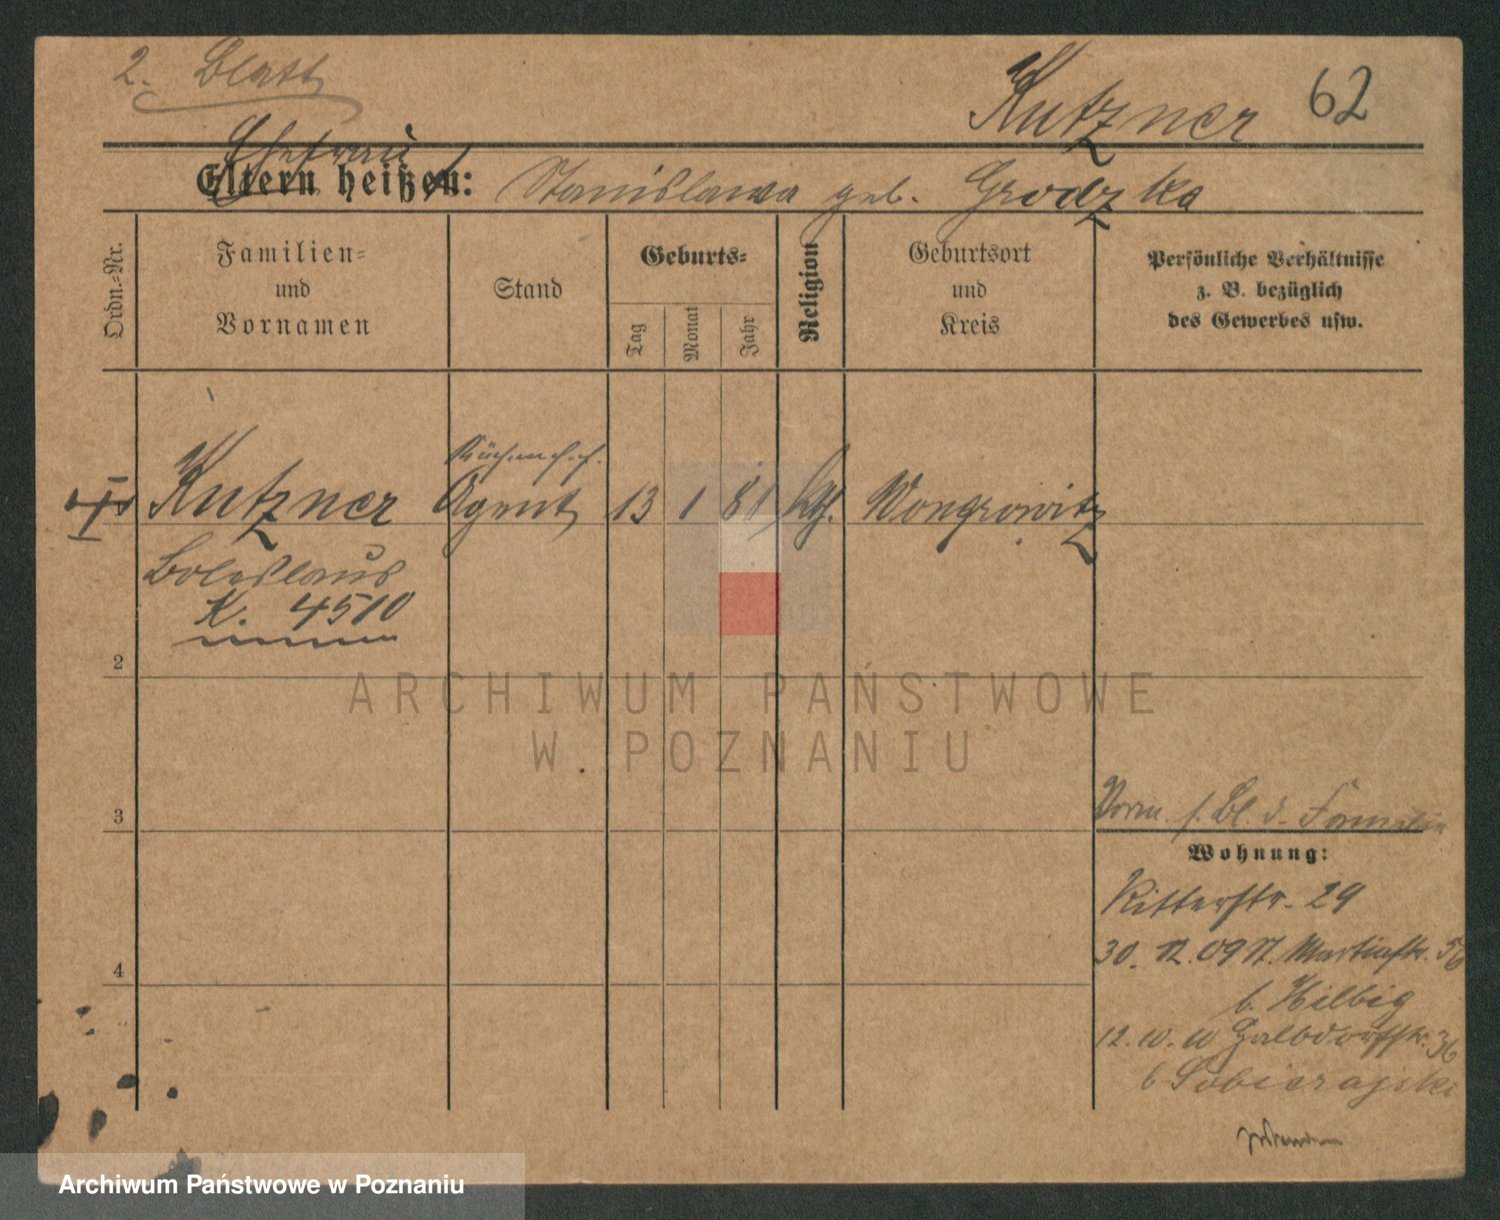 2. Blatt
Kutzner 62
Ehefrau
Eltern heißen: Stanislawa geb. Grodzka
Ordn.-Nr.
Familien-
und
Vornamen
Stand
Geburts-
Tag
Monat
Jahr
Religion
Geburtsort
und
Kreis
Persönliche Verhältnisse
z. B. bezüglich
des Gewerbes usw.
Kutzner Agent 13 1 81 kth. Wongrowitz
Boleslaus
K. 4510
2
ARCHIWUM PAŃSTWOWE
W POZNANIU
3
Vorm. s. Bl. d. Familie
Wohnung:
Ritterstr. 29
30. 12. 09 St. Martinstr. 56
4
b. Hilbig
12. 10. 10 Halbdorfstr. 36
b Sobierajski
Archiwum Państwowe w Poznaniu